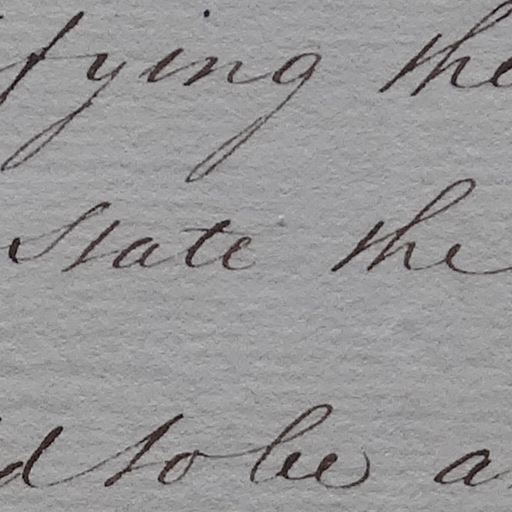 fying the
State the
d to be a